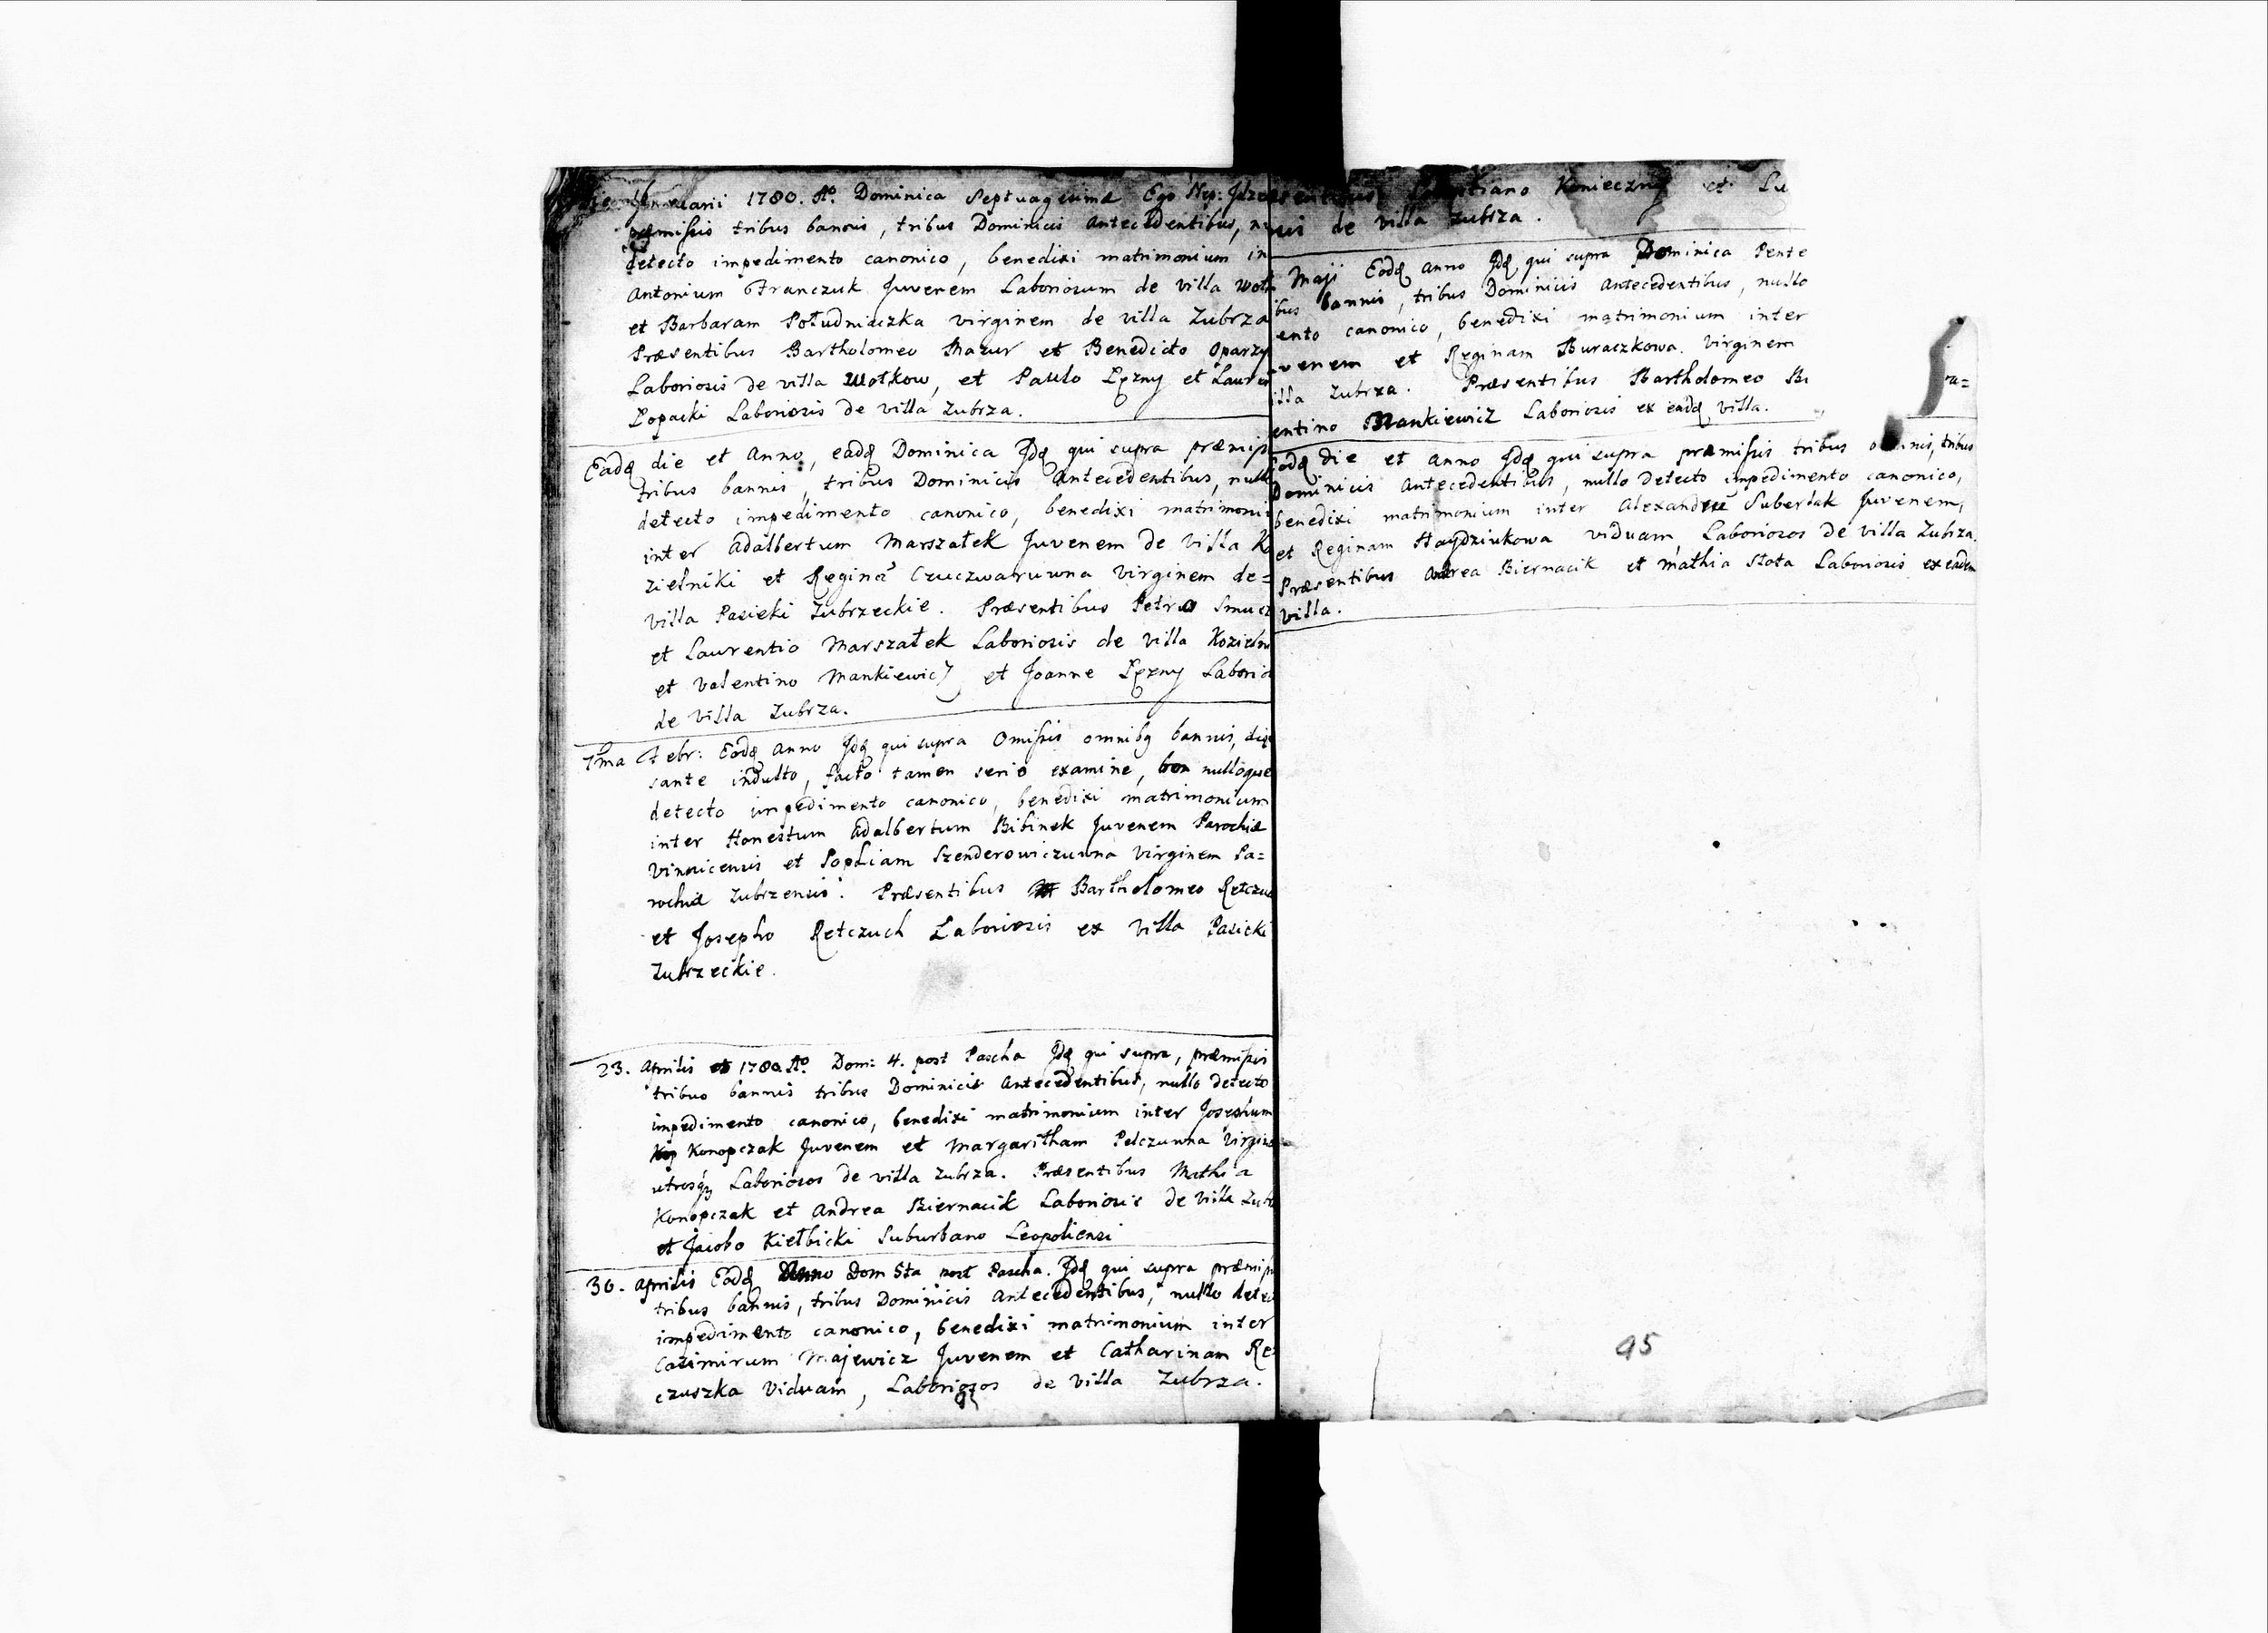 Januarii 1780. Aº. Dominica Septuagesima Ego Nep:
præmissis tribus bannis, tribus Dominicis Antecedentibus,
detecto impedimento canonico, benedixi matrimonium in
Antonium Franczuk Juvenem Laboriosum de villa Woł
et Barbaram Południaczka virginem de villa Zubrza
Præsentibus Bartholomeo Mazur et Benedicto Oparzy
Laboriosis de villa Wołkow, et Paulo Lęzny et Lauren
Łopacki Laboriosis de villa Zubrza.
Eadę die et Anno, eadę Dominica Jdę qui supra præmiss
tribus bannis, tribus Dominicis Antecedentibus, null
detecto impedimento canonico, benedixi matrimoni
inter Adalbertum Marszałek Juvenem de villa Ko
zielniki et Reginā Czuczwaruwna Virginem de=
villa Pasieki Zubrzeckie. Præsentibus Petro Smucz
et Laurentio Marszałek Laboriosis de villa Kozieln
et Valentino Mankiewicz et Joanne Lęzny Laborio
de villa Zubrza.
1ma Febr: Eodę Anno Jdę qui supra Omissis omnibꝗ bannis, disp
sante indulto, facto tamen serio examine, nulloque
detecto impedimento canonico, benedixi matrimonium
inter Honestum Adalbertum Bibinek Juvenem Parochiæ
Vinnicensis et Sophiam Szenderowiczuwna Virginem Pa=
rochiæ Zubrzensis. Præsentibus Bartholomeo Retczuc
et Josepho Retczuch Laboriosis ex villa Pasieki
Zubrzeckie.
23. Aprilis 1780. Aº. Dom: 4. post Pascha Jdę qui supra, præmissis
tribus bannis tribus Dominicis Antecedentibus, nullo detecto
impedimento canonico, benedixi matrimonium inter Josephum
Konopczak Juvenem et Margaritham Pelczunna Virgine
utrosqȝ Laboriosos de villa Zubrza. Præsentibus Mathia
Konopczak et Andrea Biernacik Laboriosis de villa Zubr
et Jacobo Kiełbicki Suburbano Leopoliensi
30. Aprilis Eodę Anno Dom 5ta post Pascha. Jdę qui supra præmiss
tribus bannis, tribus Dominicis Antecedentibus, nullo detec
impedimento canonico, benedixi matrimonium inter
Casimirum Majewicz Juvenem et Catharinam Re
czuszka Viduam, Laboriosos de villa Zubrza.
Konieczny et Lu
de villa Zubrza.
Maji Eodę Anno Jdę qui supra Dominica Pente
bus bannis, tribus Dominicis Antecedentibus, nullo
ento canonico, benedixi matrimonium inter
venem et Reginam Buraczkowa Virginem
illa Zubrza. Præsentibus Bartholomeo Bi
entino Mankiewicz Laboriosis ex eadę villa.
ra=
Eodę die et Anno Jdę qui supra præmissis tribus bannis, tribus
Dominicis Antecedentibus, nullo detecto impedimento canonico,
benedixi matrimonium inter Alexandrū Suberlak Juvenem,
et Reginam Haydziukowa viduam, Laboriosos de villa Zubrza.
Præsentibus Andrea Biernacik et Mathia Słota Laboriosis ex eadem
villa.
95